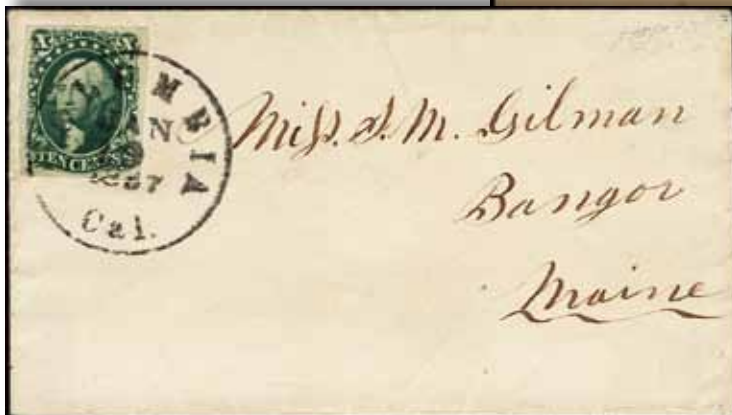 X X
TEN CENTS
UMBIA
JAN
1857
Cal.
Miss. S. M. Gilman
Bangor
Maine